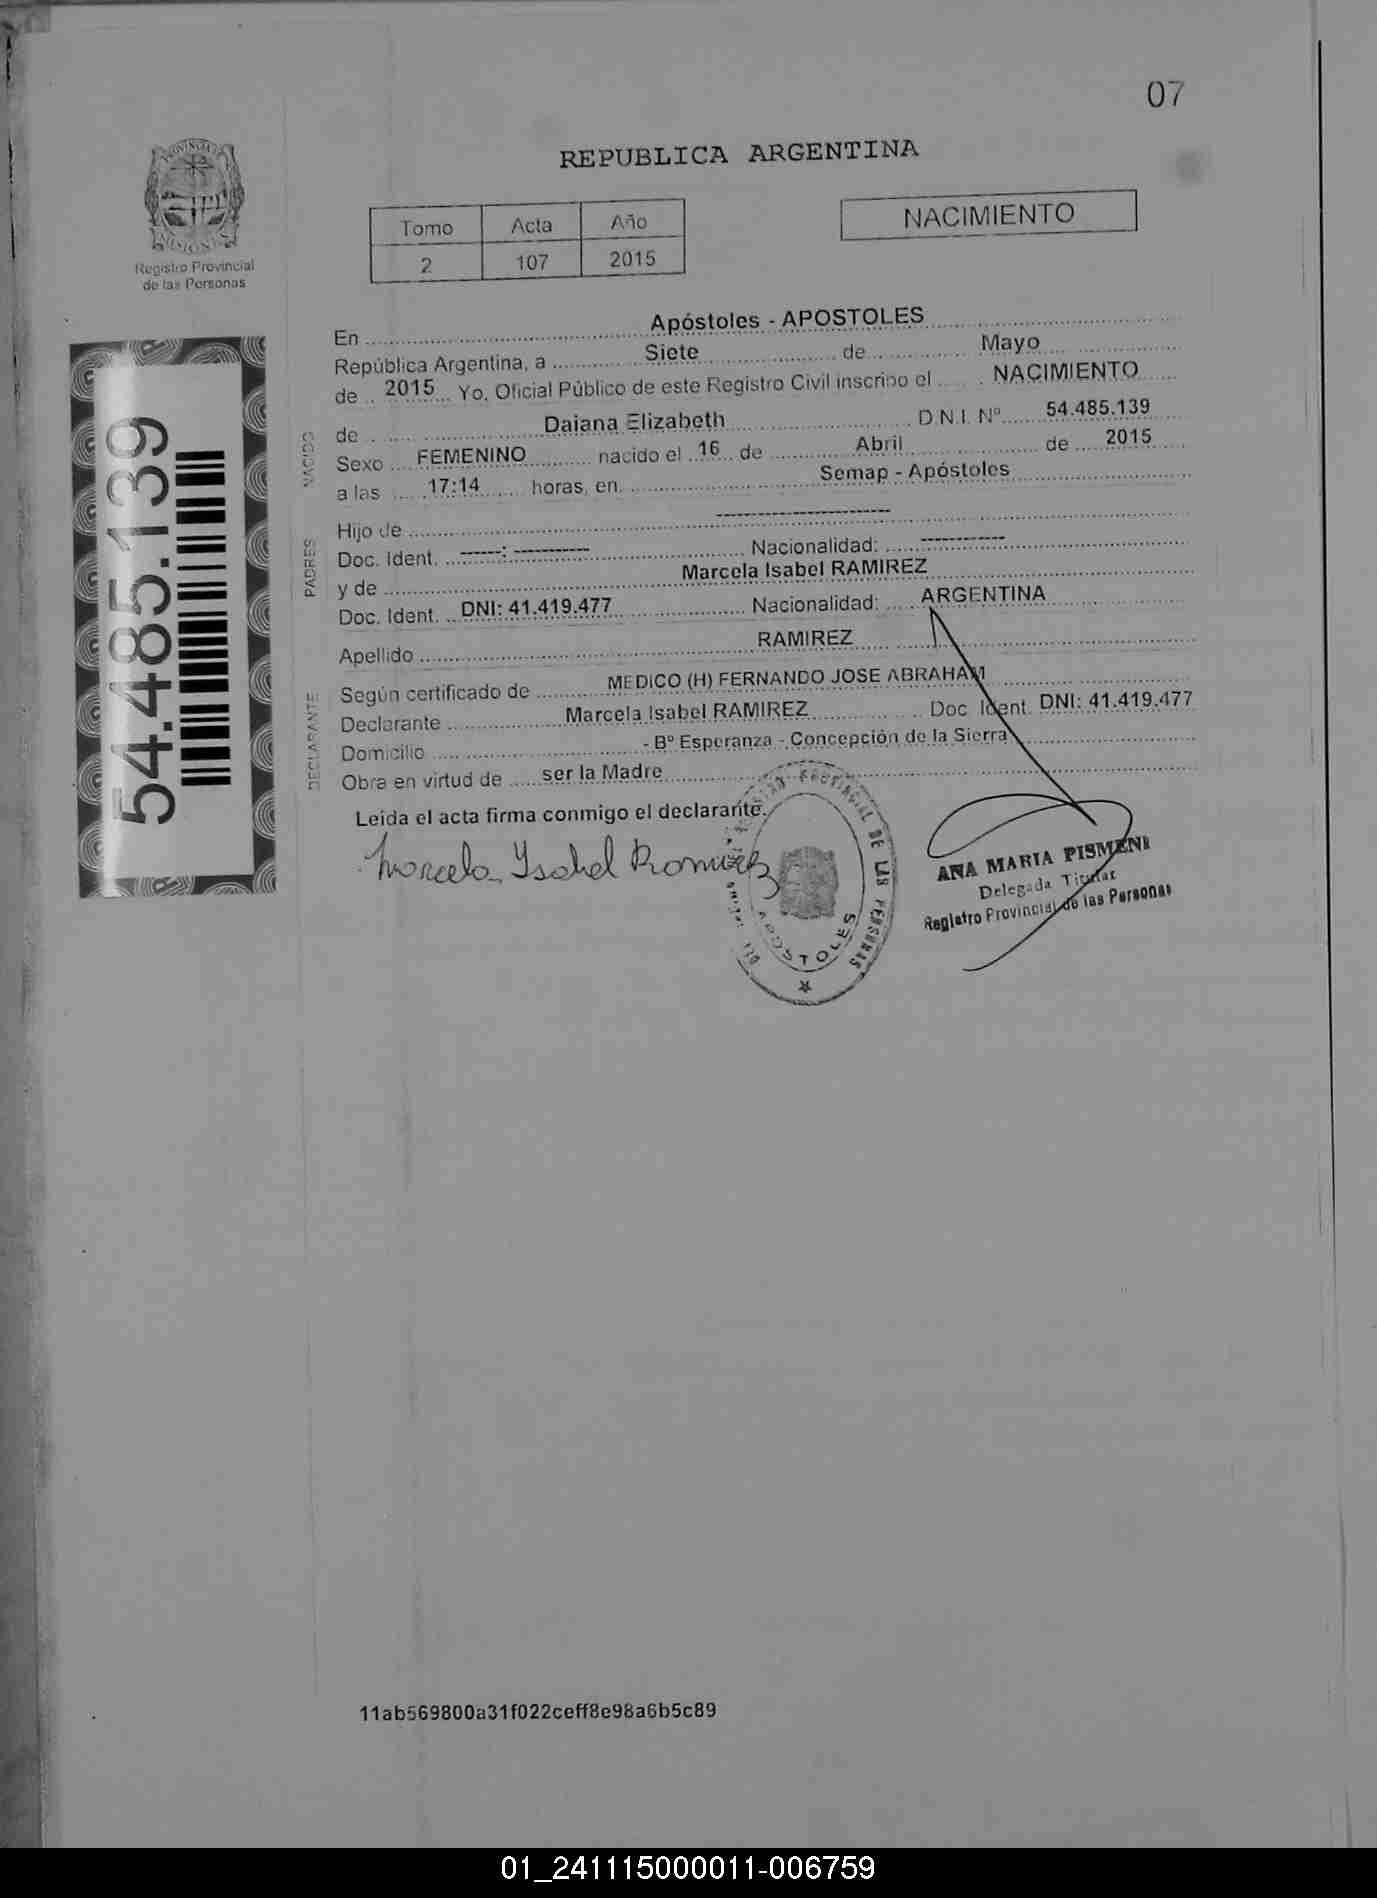 07
REPUBLICA ARGENTINA
PROVINCIA
MISIONES
Registro Provincial
de las Personas
Tomo Acta Año
2 107 2015
NACIMIENTO
54.485.139
En Apóstoles - APOSTOLES
República Argentina, a Siete de Mayo
de 2015 Yo, Oficial Público de este Registro Civil inscribo el NACIMIENTO
NACIDO
de Daiana Elizabeth D.N.I. Nº 54.485.139
Sexo FEMENINO nacido el 16 de Abril de 2015
a las 17:14 horas, en Semap - Apóstoles
PADRES
Hijo de ------------------------
Doc. Ident. ------: ----------- Nacionalidad: ------------
y de Marcela Isabel RAMIREZ
Doc. Ident. DNI: 41.419.477 Nacionalidad: ARGENTINA
Apellido RAMIREZ
DECLARANTE
Según certificado de MEDICO (H) FERNANDO JOSE ABRAHAM
Declarante Marcela Isabel RAMIREZ Doc. Ident. DNI: 41.419.477
Domicilio - Bº Esperanza - Concepción de la Sierra
Obra en virtud de ser la Madre
Leída el acta firma conmigo el declarante.
Marcela Isabel Ramirez
PROVINCIAL DE LAS PERSONAS
APOSTOLES
ANA MARIA PISMENI
Delegada Titular
Registro Provincial de las Personas
11ab569800a31f022ceff8e98a6b5c89
01_241115000011-006759